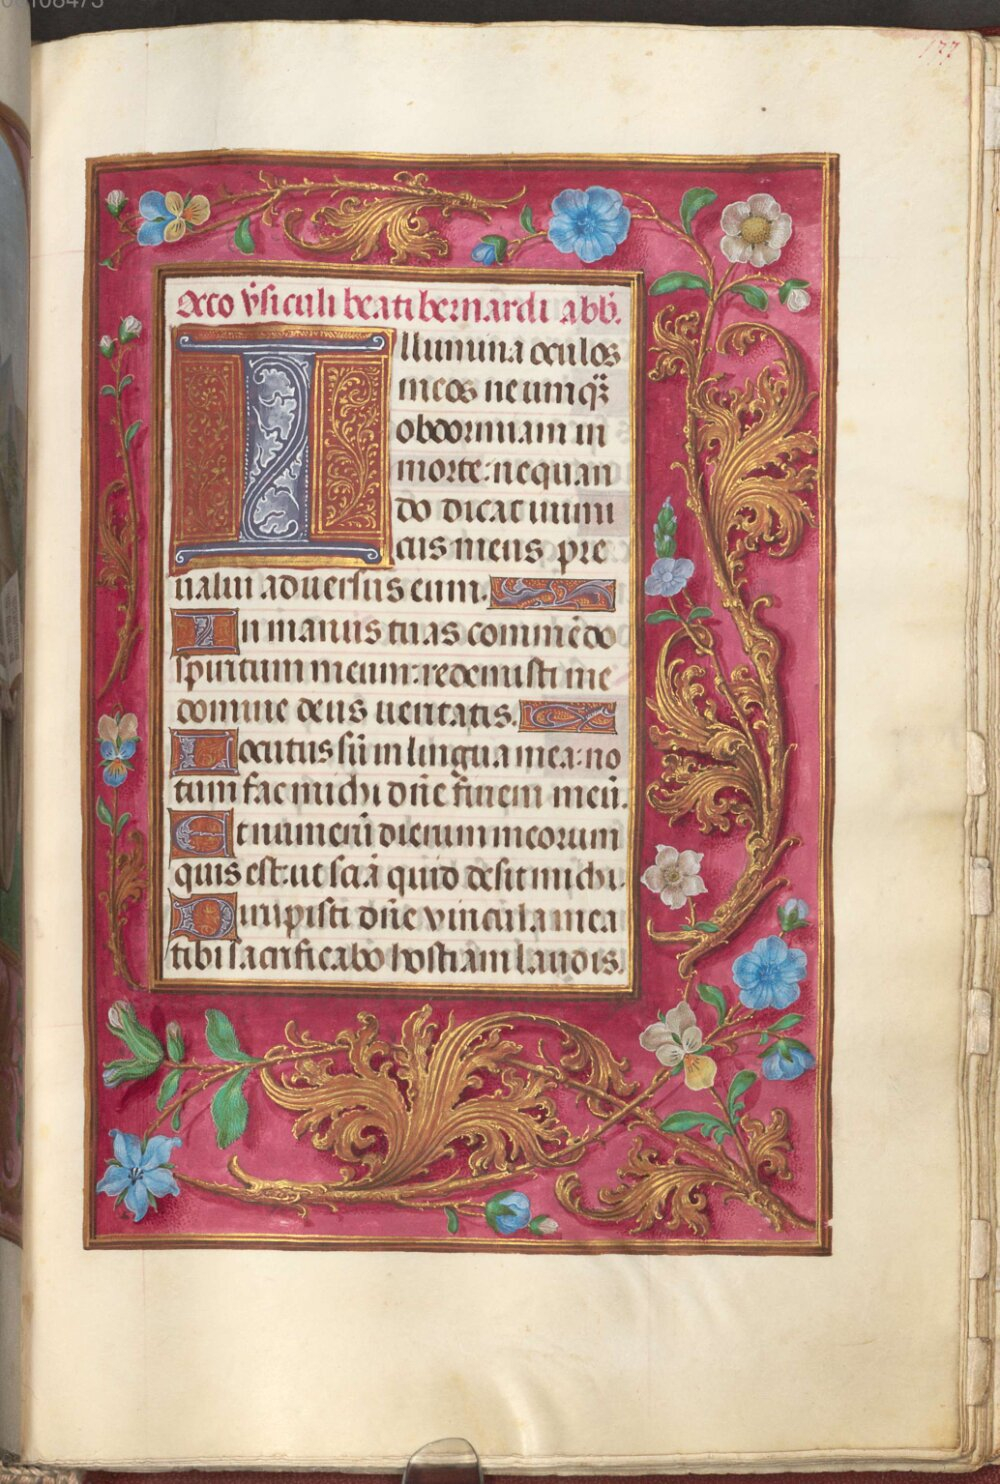 177
Octo v̄siculi beati bernardi abb̄.
Illumina oculos
meos ne umqȝ
obdormiam in
morte: nequan
do dicat inimi
cus meus pre
ualui aduersus eum.
In manus tuas commēdo
spiritum meum: redemisti me
domine deus ueritatis.
Locutus sū in lingua mea: no
tum fac michi dn̄e finem meū.
Et numerū dierum meorum
quis est: ut sciā quid desit michi.
Dirupisti dn̄e vincula mea
tibi sacrificabo hostiam laudis.